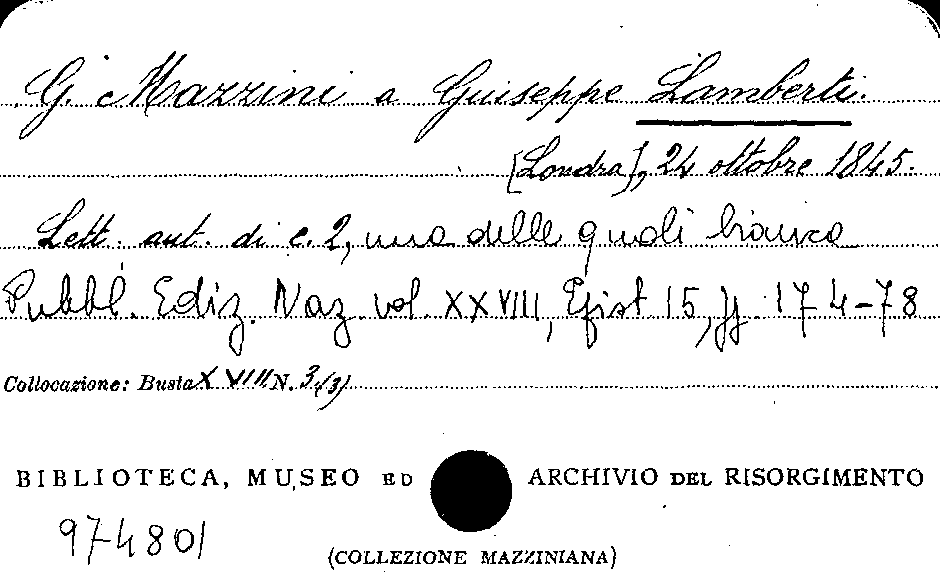 G. Mazzini a Giuseppe Lamberti.
[Londra], 24 ottobre 1845.
Lett. aut. di c. 2, una delle quali bianca
Pubbl. Ediz. Naz. vol. XXVIII, Epist. 15, pp. 174-78
Collocazione: Busta XVIII N. 3 (3)
BIBLIOTECA, MUSEO ED ARCHIVIO DEL RISORGIMENTO
974801
(COLLEZIONE MAZZINIANA)